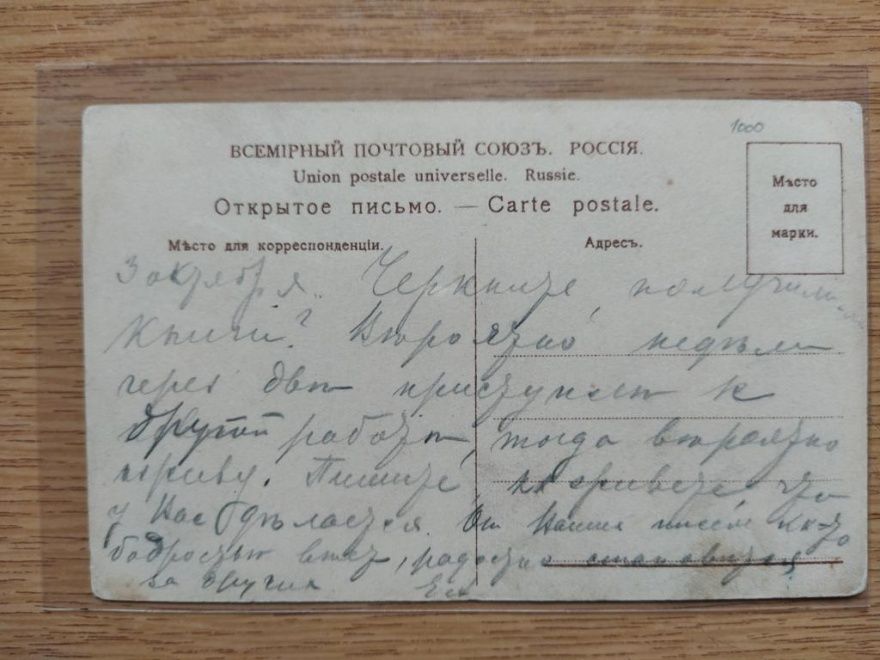 1000
ВСЕМІРНЫЙ ПОЧТОВЫЙ СОЮЗЪ. РОССІЯ.
Union postale universelle. Russie.
Открытое письмо. — Carte postale.
Мѣсто для марки.
Мѣсто для корреспонденціи.
Адресъ.
3 октября. Черкните, получили
книги? Вѣроятно недѣли
через двѣ приступлю к
другой работѣ, тогда вѣроятно
Пишите, как живете что
у Вас дѣлается. От Ваших писем
бодростью вѣет, радостно становится
за других